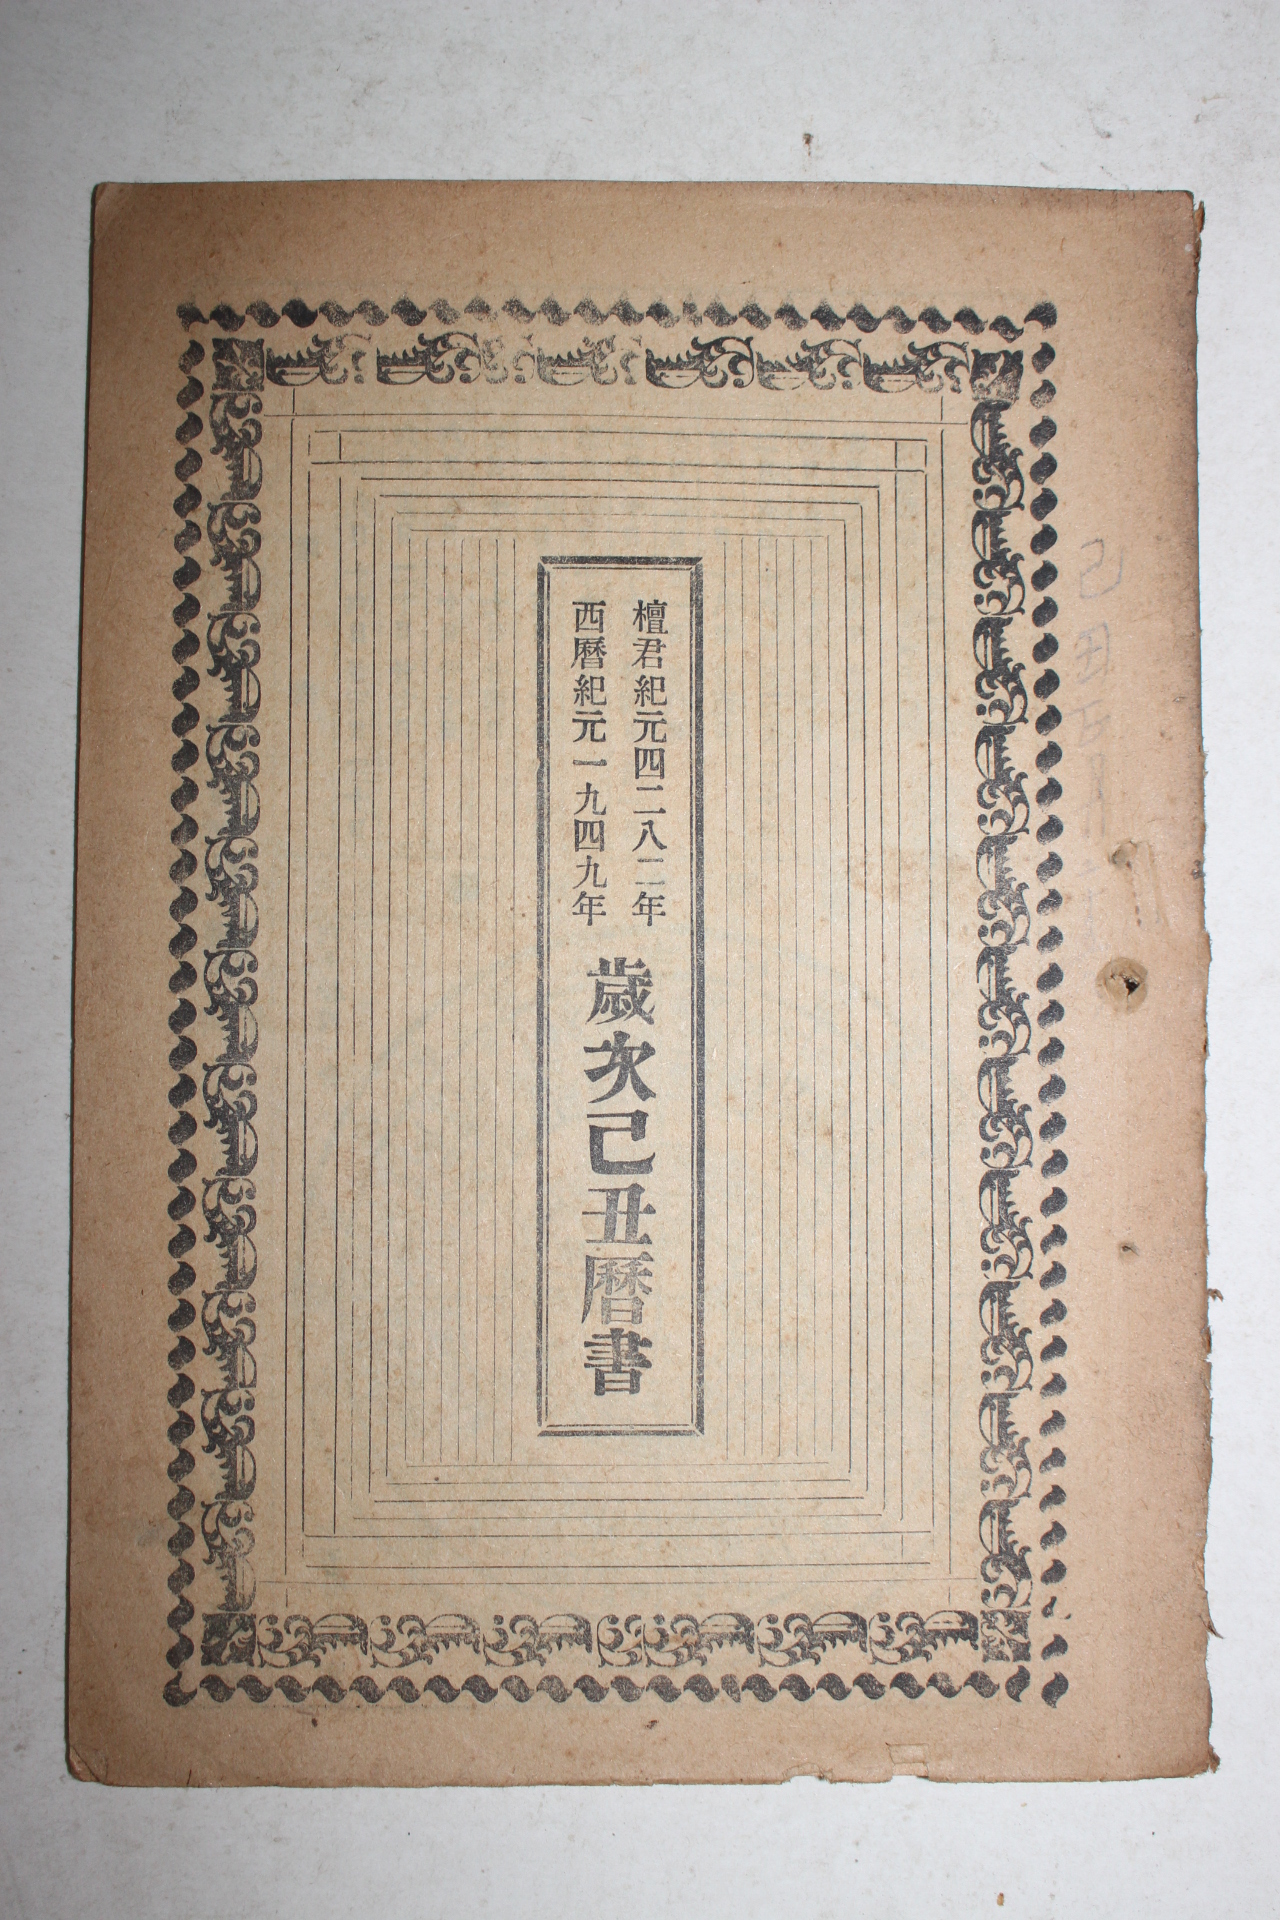 檀君紀元四二八二年
西曆紀元一九四九年
歲次己丑曆書
己丑